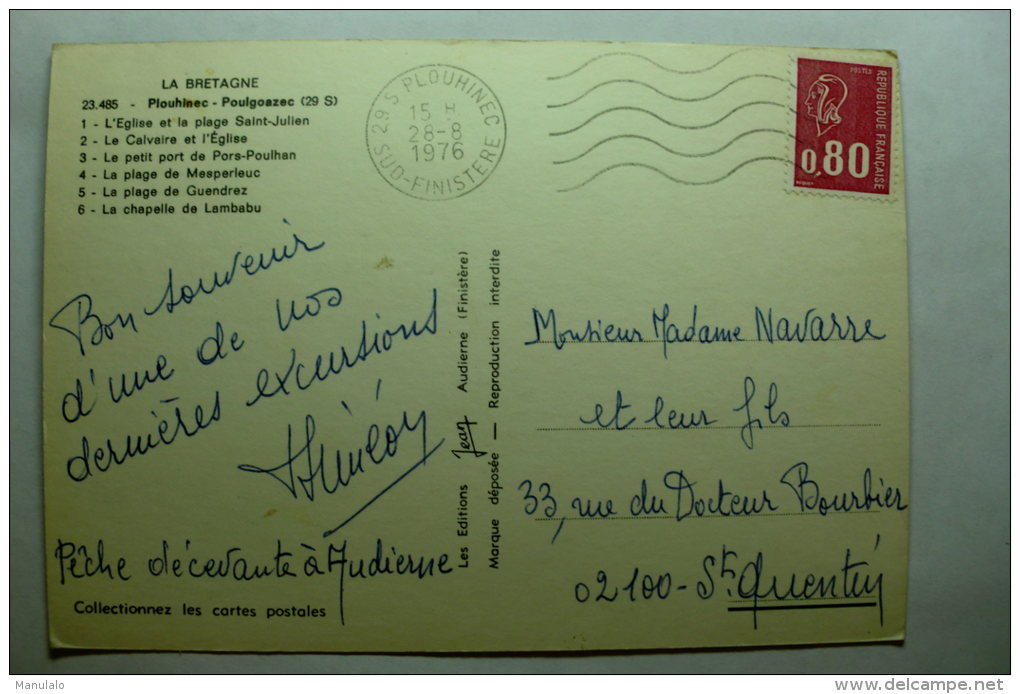 LA BRETAGNE
23.485 - Plouhinec - Poulgoazec (29 S)
1 - L'Eglise et la plage Saint-Julien
2 - Le Calvaire et l'Église
3 - Le petit port de Pors-Poulhan
4 - La plage de Mesperleuc
5 - La plage de Guendrez
6 - La chapelle de Lambabu
29 S PLOUHINEC
15 H
28-8
1976
SUD-FINISTERE
POSTES
REPUBLIQUE FRANÇAISE
0,80
Bon souvenir
d'une de nos
dernières excursions
Pêche décevante à Audierne
Collectionnez les cartes postales
Les Editions Jean Audierne (Finistère)
Marque déposée — Reproduction interdite
Monsieur Madame Navarre
et leur fils
33, rue du Docteur Bourbier
02100 - St. Quentin
Manulalo
delcampe.net